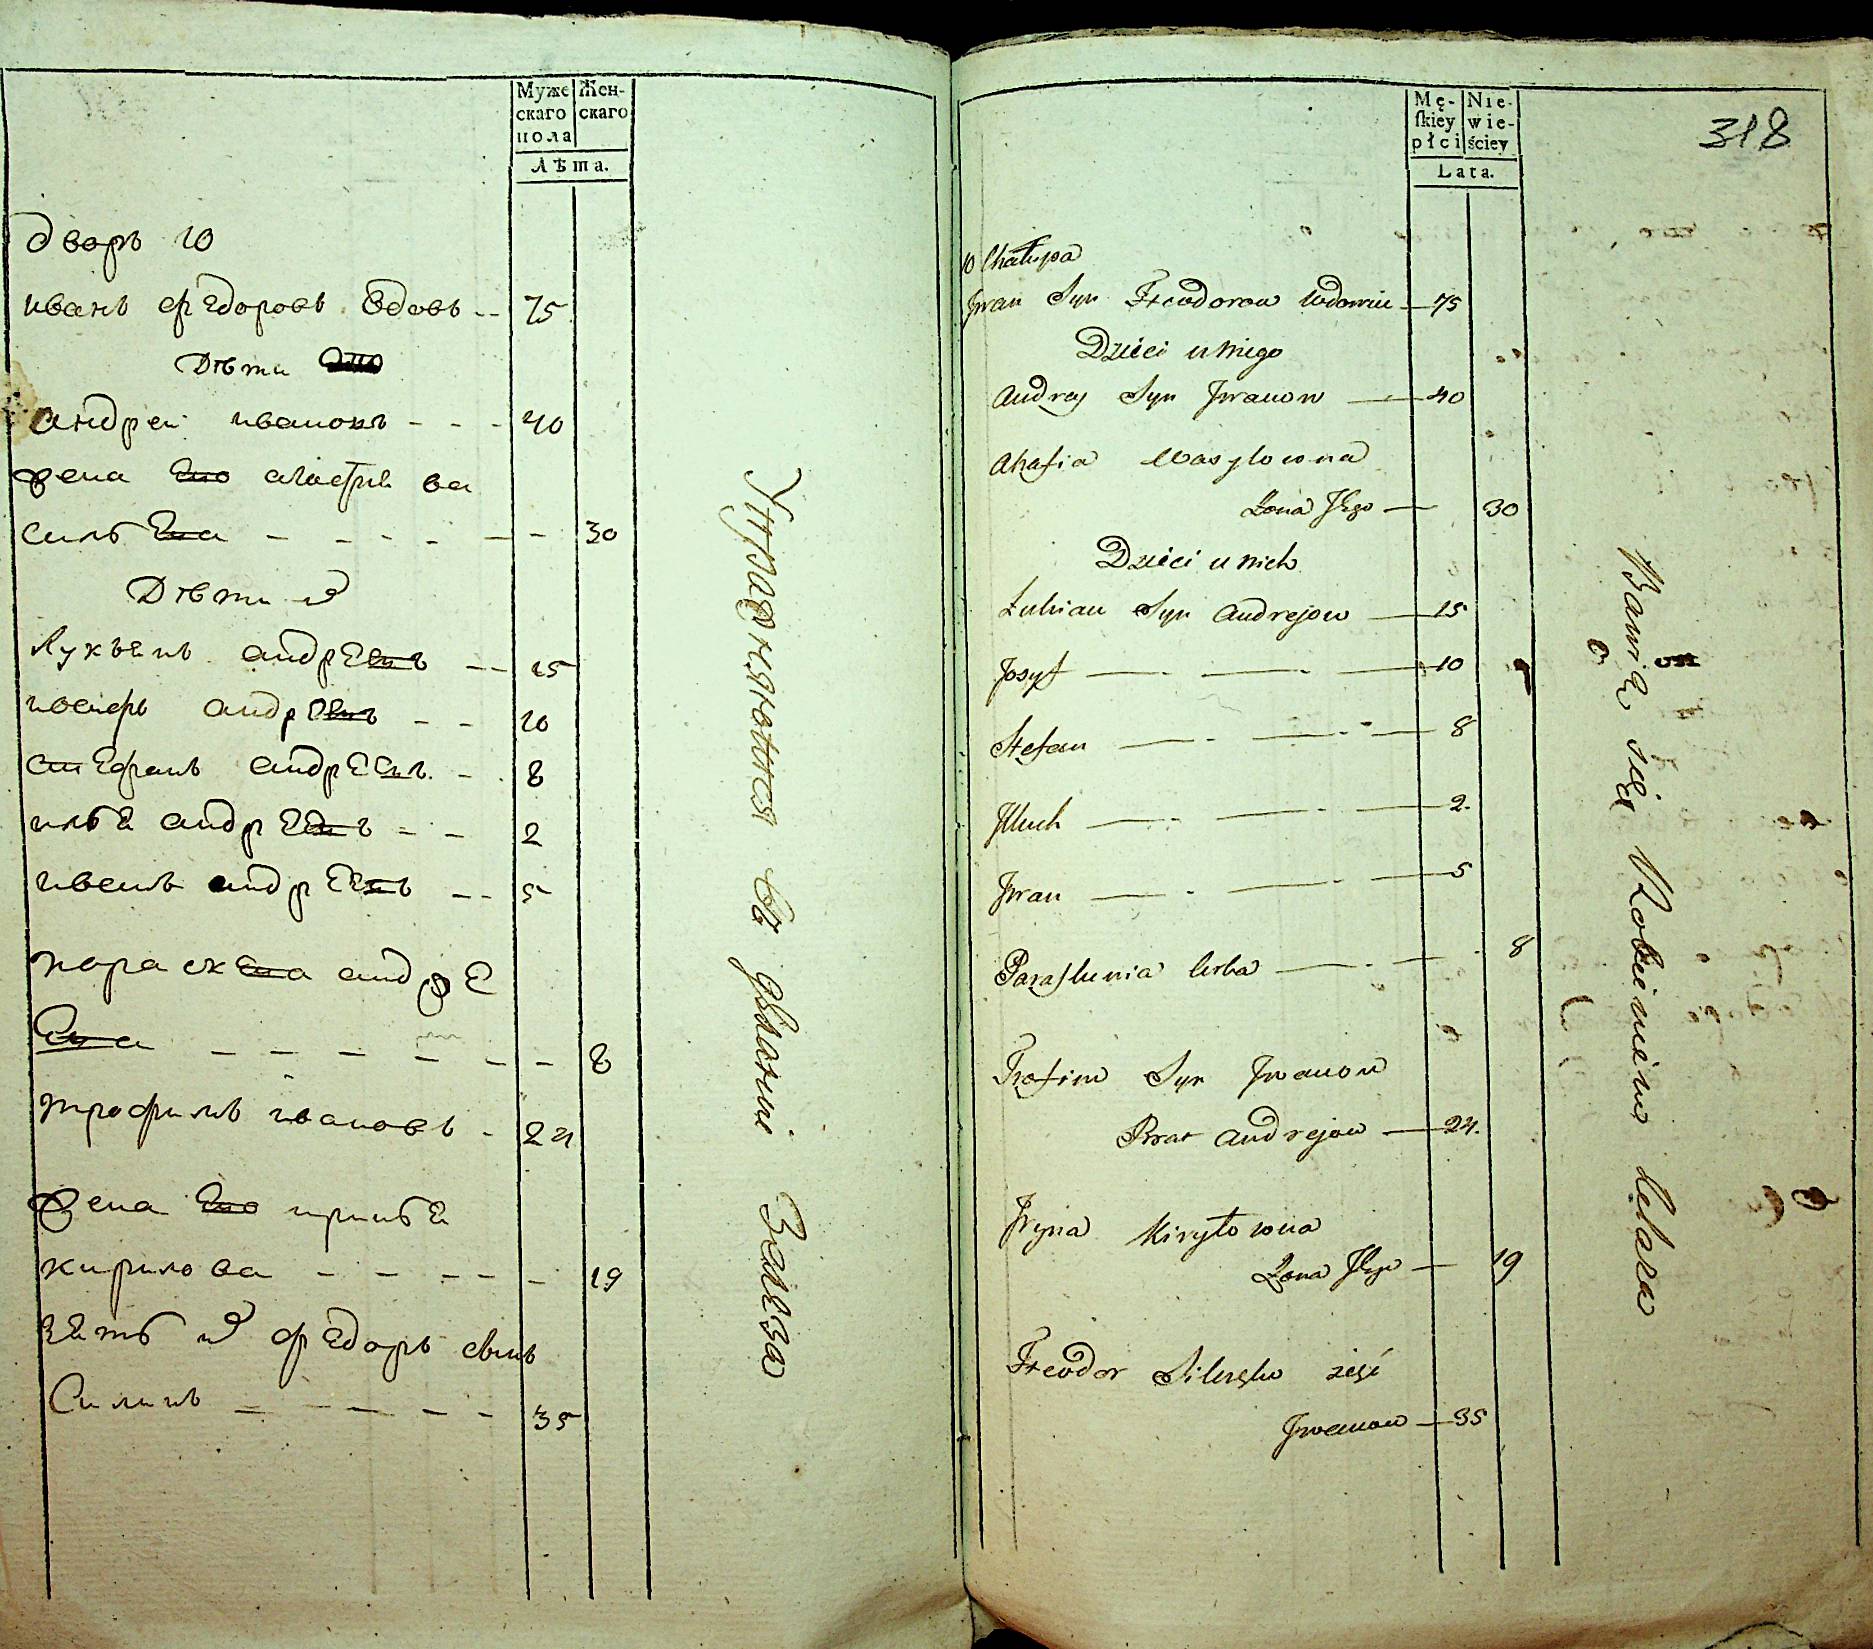 Муже Жен-
скаго скаго
пола
Лѣта.
дворъ 10
иванъ федоровъ вдовъ -- 75
Дѣти
андреи ивановъ - - - 40
жена его агафия ва
сильева - - - - - - 30
Дѣти их
Лукьянъ андреевъ -- 15
иосифъ андреевъ - - 10
стефанъ андреевъ - - 8
илья андреевъ - - 2
иванъ андреевъ -- 5
параскева андре
ева - - - - - - 8
трофимъ ивановъ - 24
жена его ирина
кирилова - - - - - 19
зять их федоръ
Силинъ - - - - - 35
Упражняются въ деланіи Železa
Mę- Nie-
ſkiey wie-
płci ściey
Lata.
318
10 Chałupa
Jwan Syn Fteodorow Wdowiec 75
Dzieci u niego
Andrey Syn Jwanow — 40
Ahafia Wasylowna
Żona Jego — 30
Dzieci u nich
Łukian Syn Andrejow — 15
Josyf — - — - — 10
Stefan — - — - — 8
Jlluch — - — - — 2.
Jwan — - — - — 5
Parasunia Curka — - — - 8
Trofim Syn Jwanow
Brat Andrejow — 24.
Jryna Kiryłowna
Żona Jego — 19
Fteodor zięć
Jwanow — 35
Bawią się Robieniem Żelaza